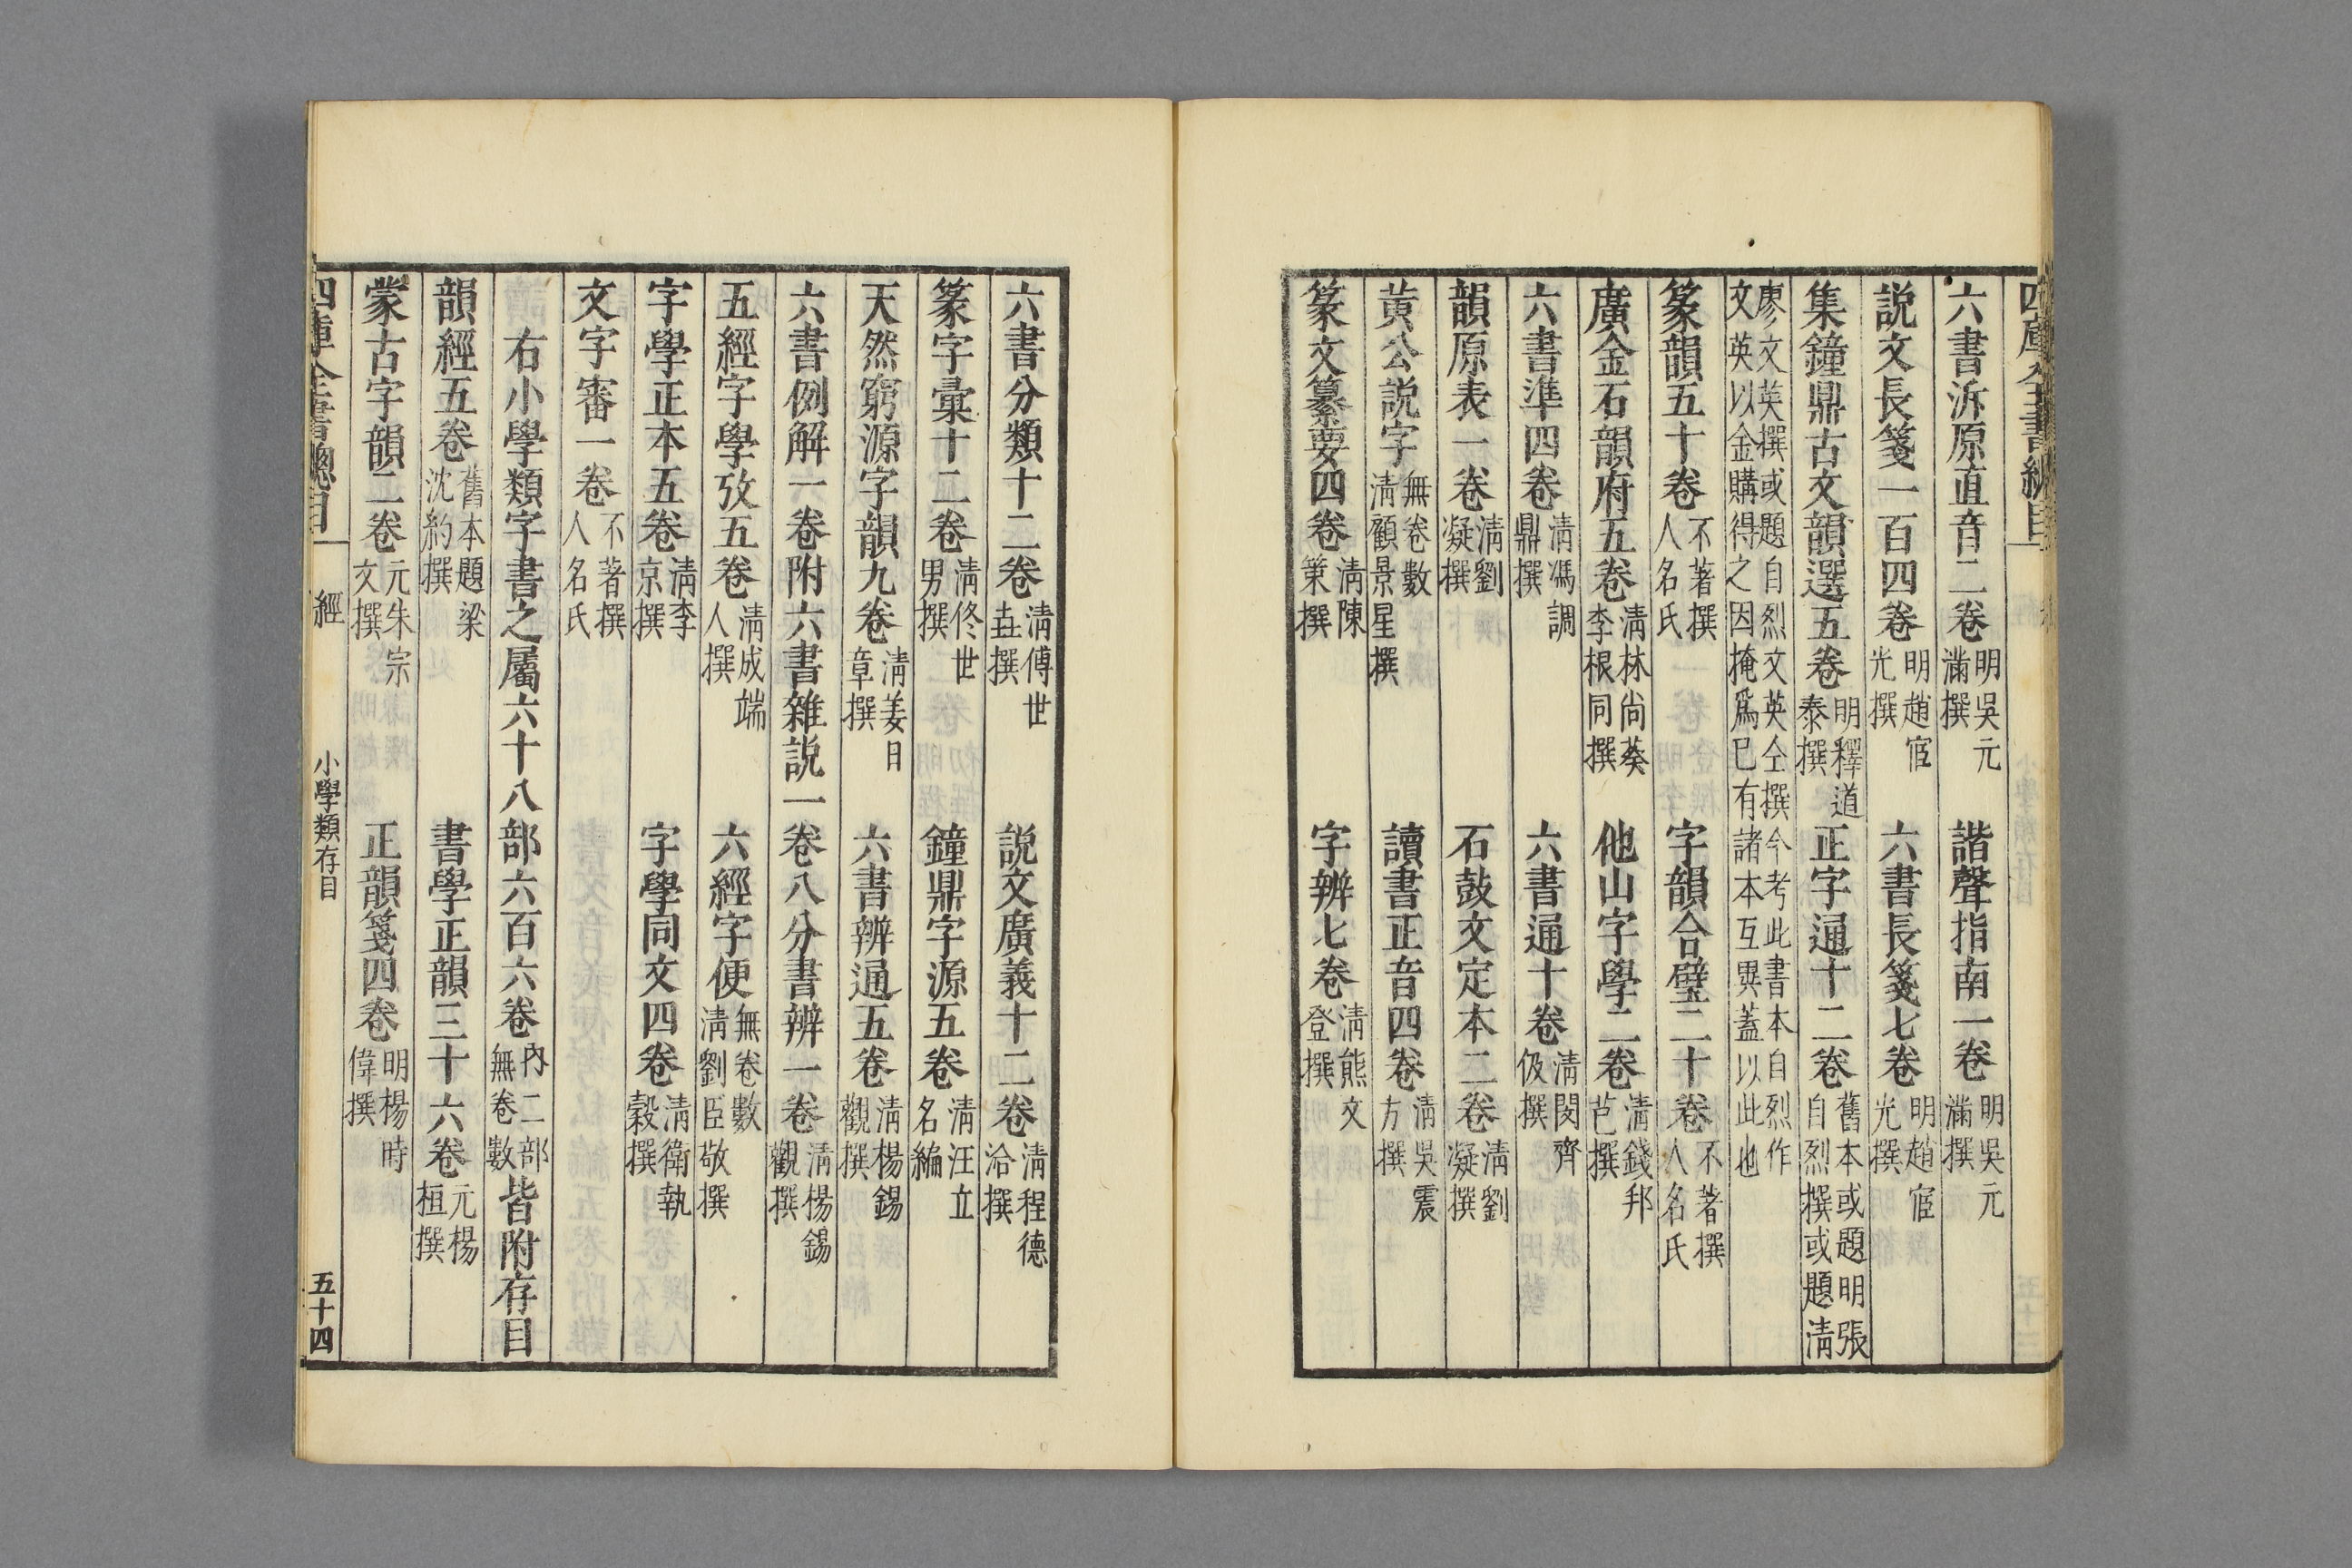 四庫全書總目
六書泝原直音二卷 明吳元滿撰 諧聲指南一卷 明吳元滿撰
説文長箋一百四卷 明趙宧光撰 六書長箋七卷 明趙宧光撰
集鐘鼎古文韻選五卷 明釋道泰撰 正字通十二卷 舊本或題明張自烈撰或題清
廖文英撰或題自烈文英仝撰今考此書本自烈作
文英以金購得之因掩爲己有諸本互異蓋以此也
篆韻五十卷 不著撰人名氏 字韻合璧二十卷 不著撰人名氏
廣金石韻府五卷 清林尚葵李根同撰 他山字學二卷 清錢邦芑撰
六書準四卷 清馮調鼎撰 六書通十卷 清閔齊伋撰
韻原表一卷 清劉凝撰 石鼓文定本二卷 清劉凝撰
黃公説字 無卷數清顧景星撰 讀書正音四卷 清吳震方撰
篆文纂要四卷 清陳策撰 字辨七卷 清熊文登撰
六書分類十二卷 清傅世垚撰 説文廣義十二卷 清程德洽撰
篆字彙十二卷 清佟世男撰 鐘鼎字源五卷 清汪立名編
天然窮源字韻九卷 清姜日章撰 六書辨通五卷 清楊錫觀撰
六書例解一卷附六書雜説一卷八分書辨一卷 清楊錫觀撰
五經字學攷五卷 清成端人撰 六經字便 無卷數清劉臣敬撰
字學正本五卷 清李京撰 字學同文四卷 清衛執穀撰
文字審一卷 不著撰人名氏
右小學類字書之屬六十八部六百六卷 內二部無卷數 皆附存目
韻經五卷 舊本題梁沈約撰 書學正韻三十六卷 元楊桓撰
蒙古字韻二卷 元朱宗文撰 正韻箋四卷 明楊時偉撰
四庫全書總目 經 小學類存目 五十四